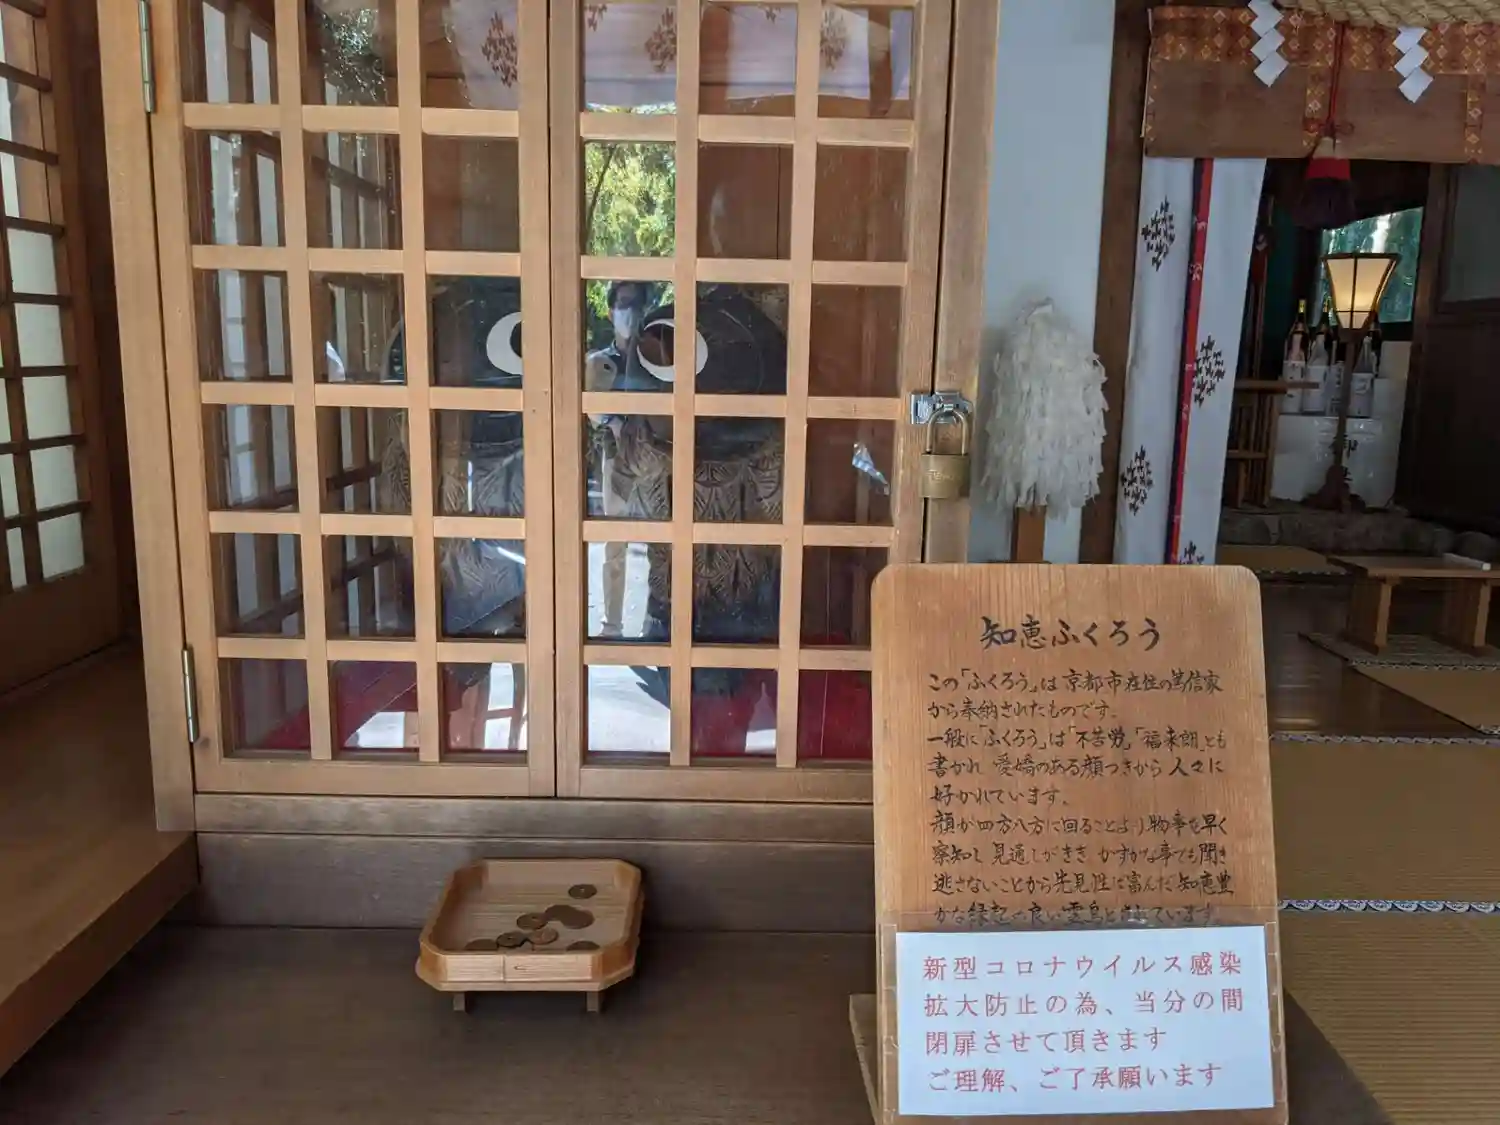 知恵ふくろう
この「ふくろう」は京都市在住の篤信家
から奉納されたものです。
一般に「ふくろう」は「不苦労」「福来朗」とも
書かれ 愛嬌のある顔つきから 人々に
好かれています。
顔が四方八方に回ることより物事を早く
察知し 見通しがきき かすかな事でも聞き
逃さないことから先見性に富んだ知恵豊
かな縁起の良い霊鳥とされています。
新型コロナウイルス感染
拡大防止の為、当分の間
閉扉させて頂きます
ご理解、ご了承願います